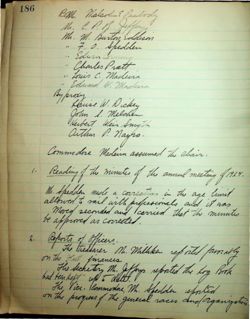 186
P.M. Malcolm Peabody
Mr. E. P. B.
Mr. M. Burton
" F. O. Spedden
" Edwin
" Charles Pratt
" Louis C. Madeira
" Edward W. Madeira
By proxy
W. Dickey
John S.
Herbert
Arthur P.
Commodore Madeira assumed the chair.
1. Reading of the minutes of the annual meeting of 1954.
Mr Spedden made a correction in the age limit
allowed to sail with professionals and it was
Moved seconded and carried that the minutes
be approved as corrected.
2. Reports of Officers.
The Treasurer Mr. Milliken reported
on the finances.
The Secretary Mr Jeffreys reported the log book
had been kept up to date.
The Vice Commodore Mr Spedden reported
on the progress of the general races and organization